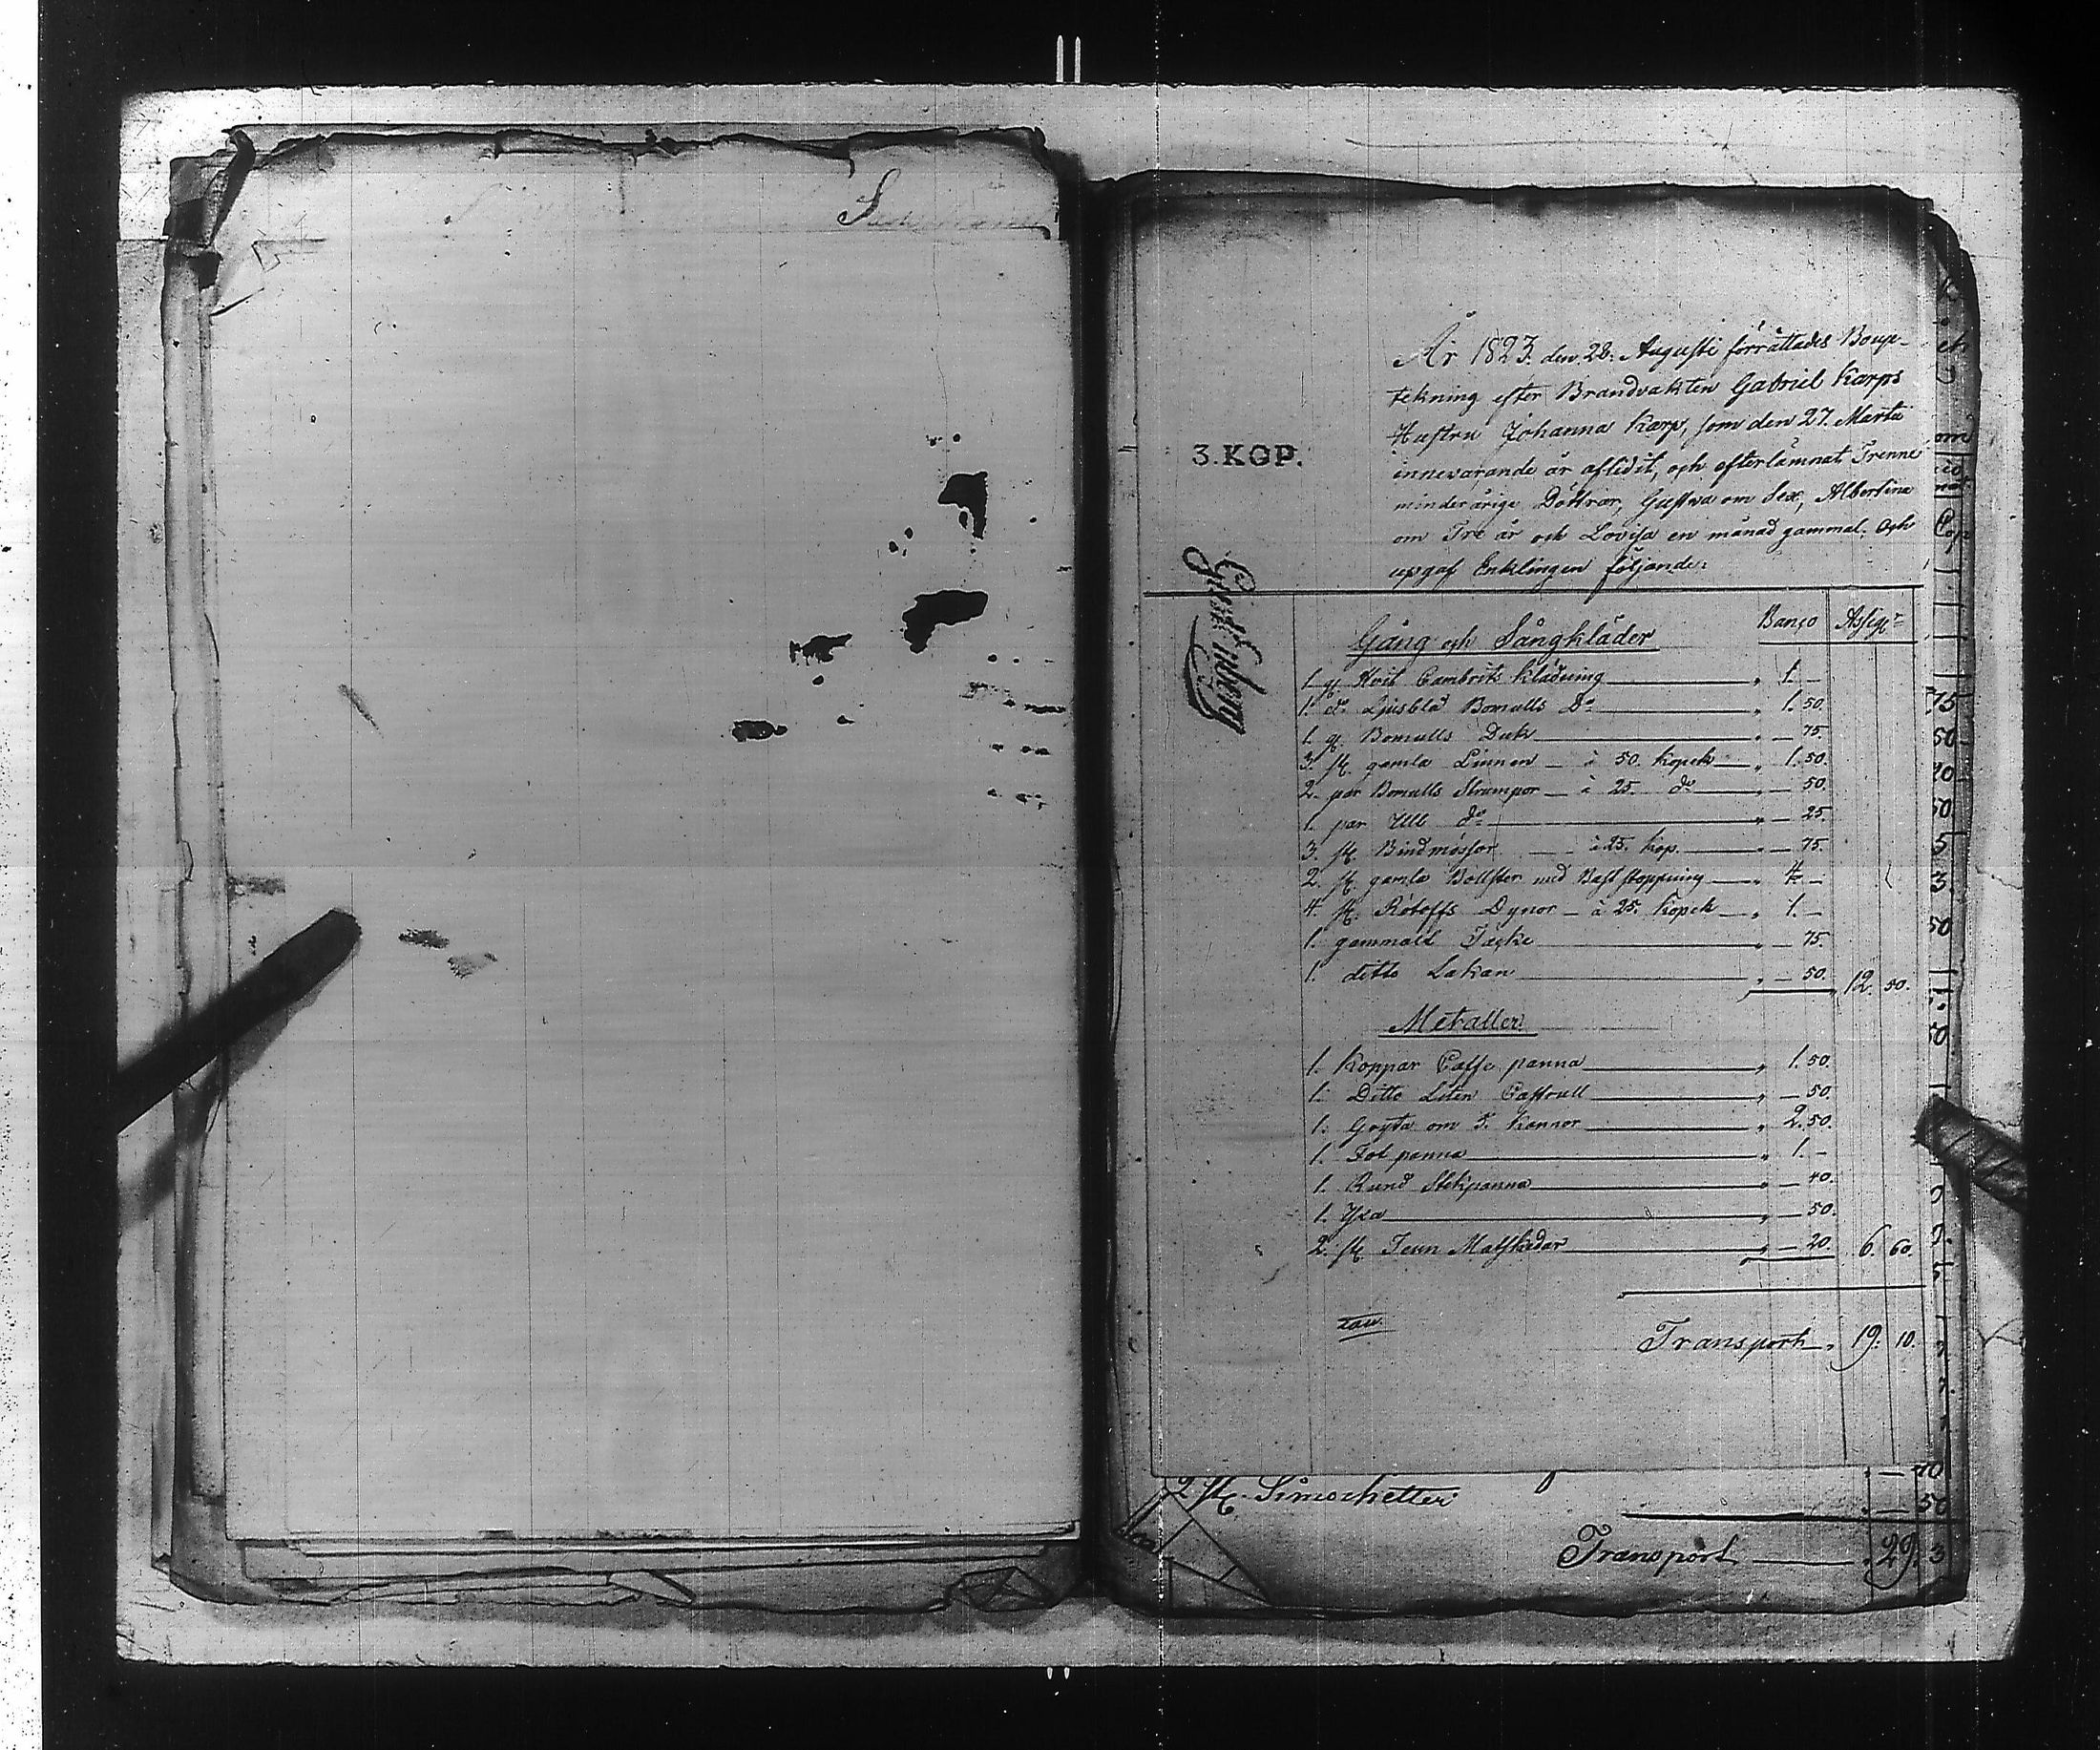 3. KOP.
År 1823. den 28. Augusti förrättades Boup-
tekning efter Brandvakten Gabriel Karps
Hustru Johanna Karp, som den 27. Martii
innevarande år aflidit, och efterlämnat Trenne
minderårige Döttrar, Gustava om Sex, Albertina
om Tre år och Lovisa en månad gammal; Och
upgaf Enklingen följande:
Gång och Sängkläder Banco Assig:r
1. st. Hvit Cambriks Klädning " 1. -
1. do Ljusblå Bomulls Do " 1. 50.
1. st. Bomulls Duk " - 75.
3. st. gamla Linnen - à 50. kopek " 1. 50.
2. par Bomulls Strumpor - à 25. do " - 50.
1. par Ull do " - 25.
3. st. Bindmössor - à 25. kop. " - 75.
2. st. gamla Bollster med Bast stoppning " 4. -
4. st. Dynor - à 25. kopek " 1. -
1. gammalt Täcke " - 75.
1. ditto Lakan " - 50. 12. 50.
Metaller
1. Koppar Caffe panna " 1. 50.
1. Ditto Liten Castrull " - 50.
1. Gryta om 5. kannor " 2. 50.
1. Fot panna " 1. -
1. Rund Stekpanna " - 40.
1. Yxa " - 50.
2. st. Tenn Matskedar " - 20. 6. 60.
Transport " 19. 10.
2 st.
50
Transport 29. 3